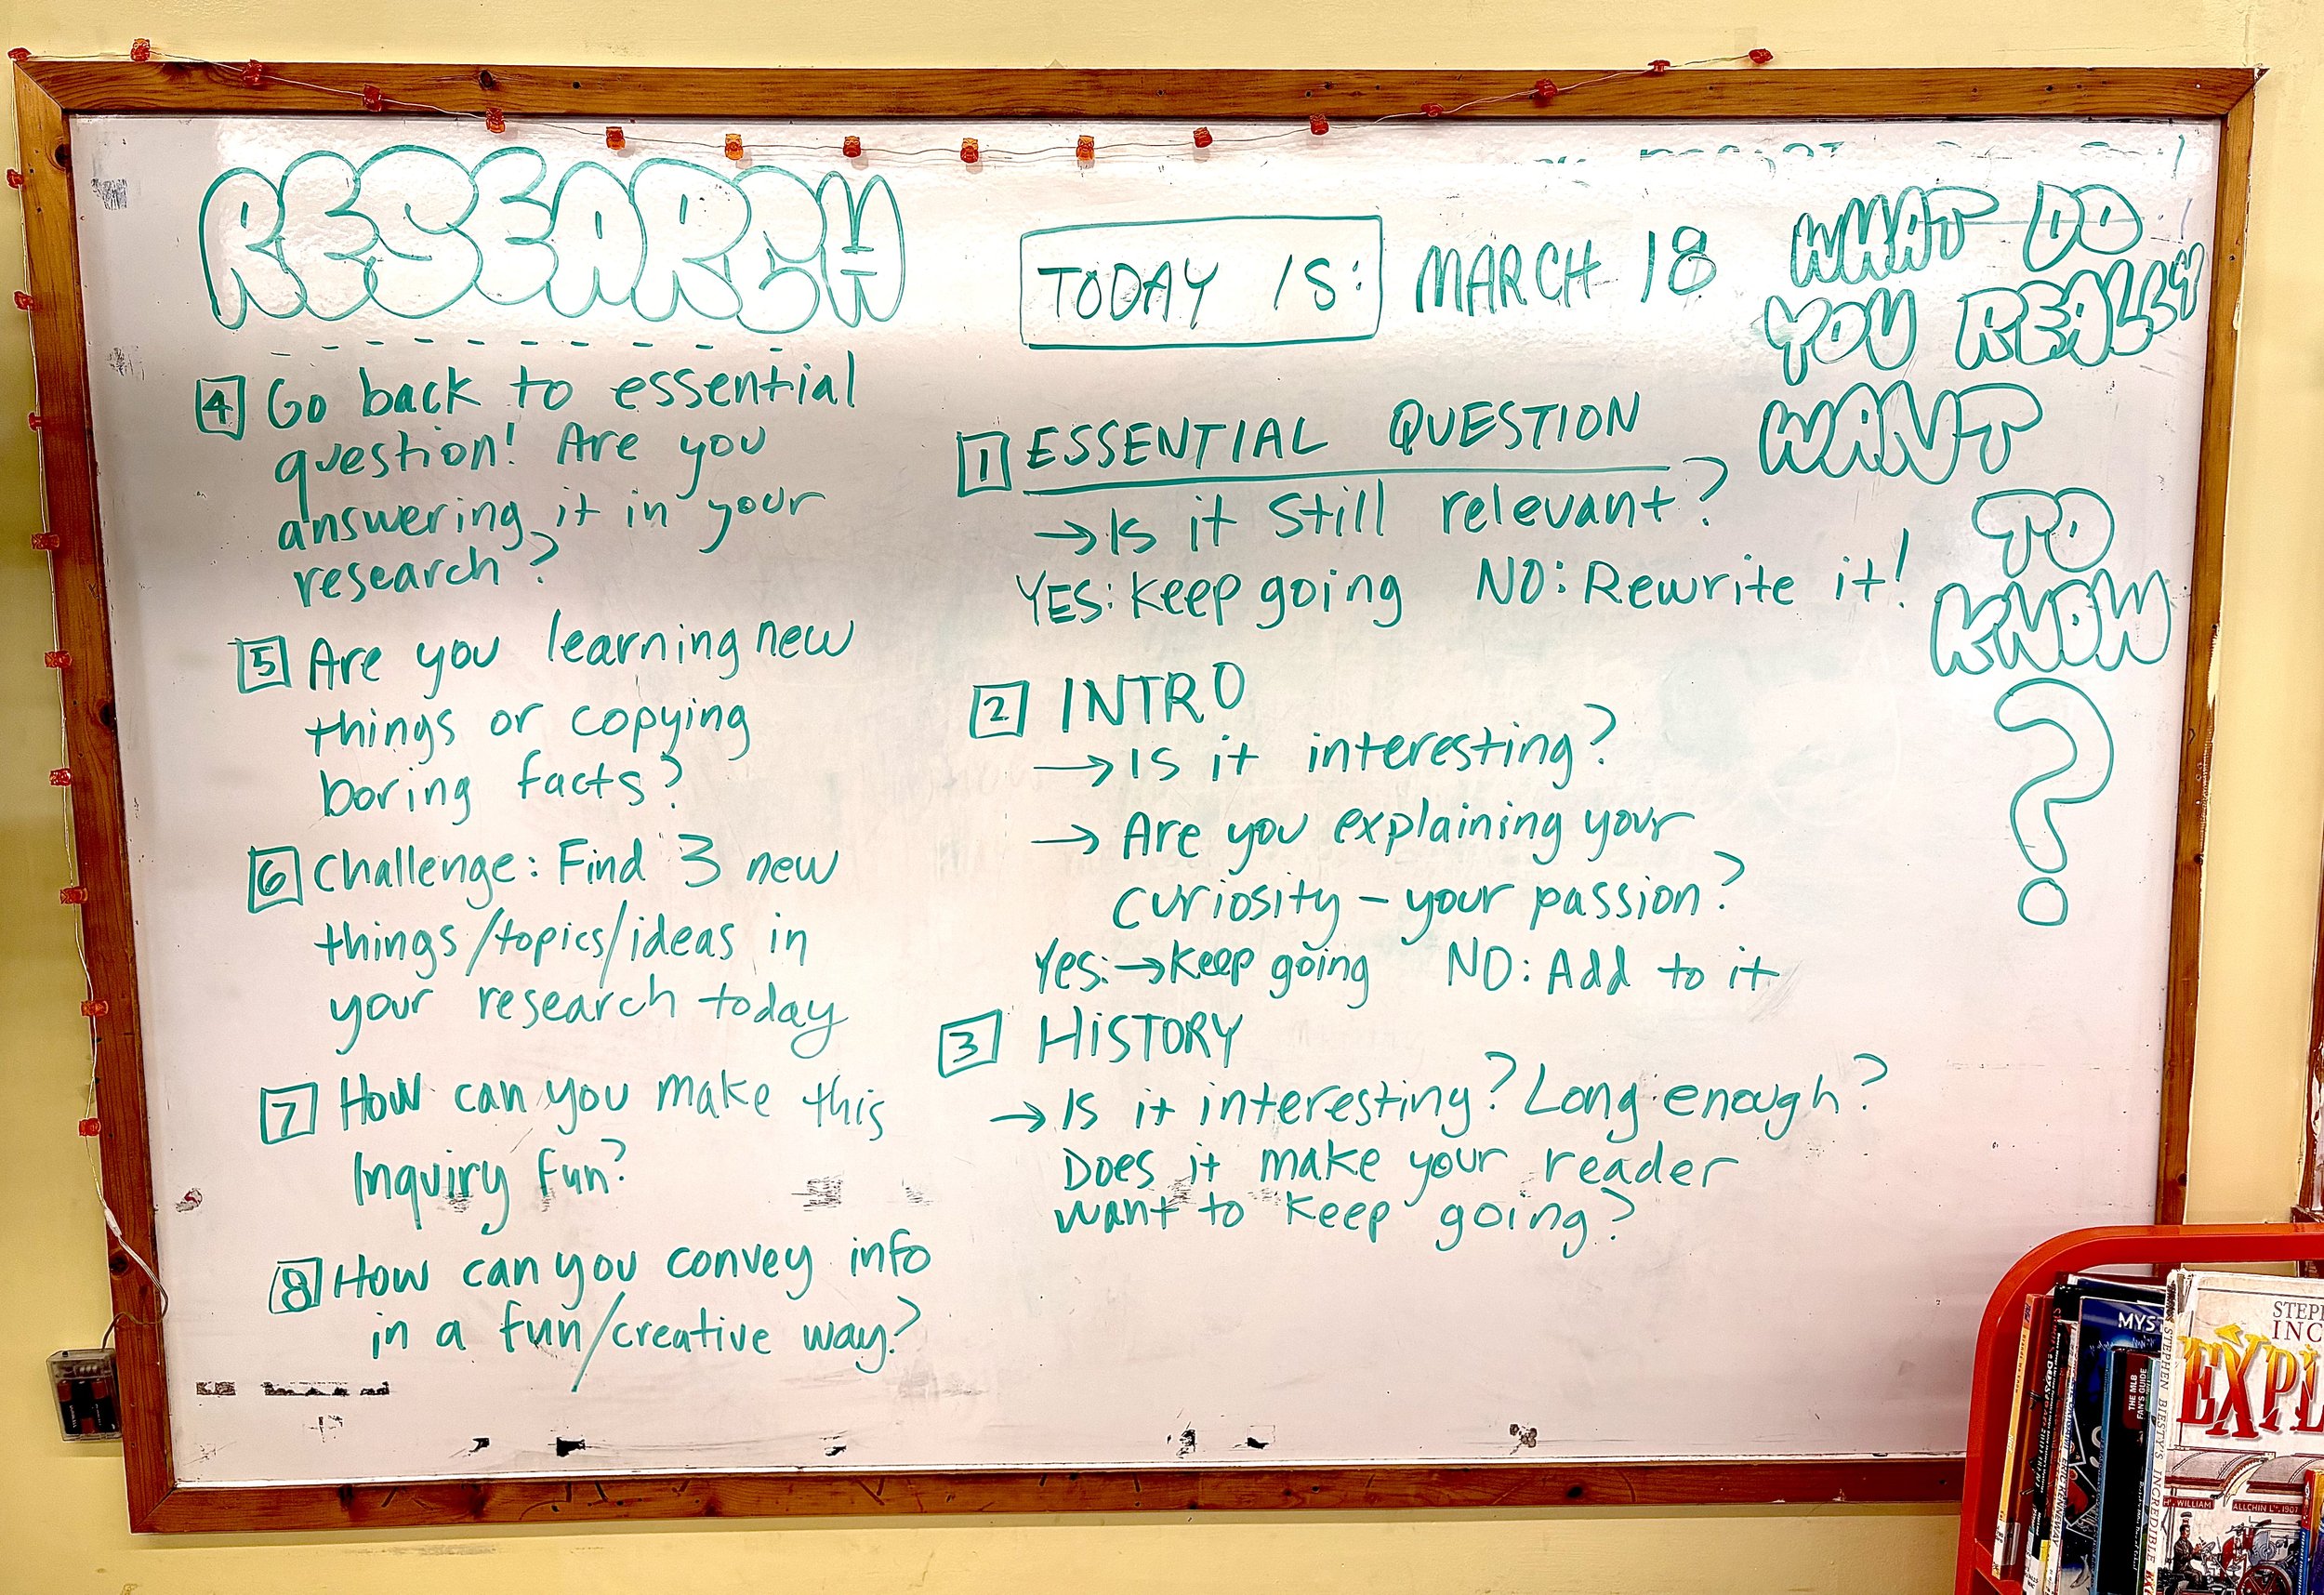 RESEARCH
TODAY IS: MARCH 18
WHAT DO
YOU REALLY
WANT
TO
KNOW
?
1 ESSENTIAL QUESTION
→ Is it still relevant?
YES: Keep going NO: Rewrite it!
2 INTRO
→ Is it interesting?
→ Are you explaining your
curiosity – your passion?
Yes: → Keep going NO: Add to it
3 HISTORY
→ Is it interesting? Long enough?
Does it make your reader
want to keep going?
4 Go back to essential
question! Are you
answering it in your
research?
5 Are you learning new
things or copying
boring facts?
6 Challenge: Find 3 new
things/topics/ideas in
your research today
7 How can you make this
Inquiry fun?
8 How can you convey info
in a fun/creative way?
MYST
THE MLB
FAN'S GUIDE
STEPHEN BIESTY'S INCREDIBLE
STEP
INC
EXPL
WILLIAM
ALLCHIN Lᵗᵈ. 1907
ERIC KENNEWAY